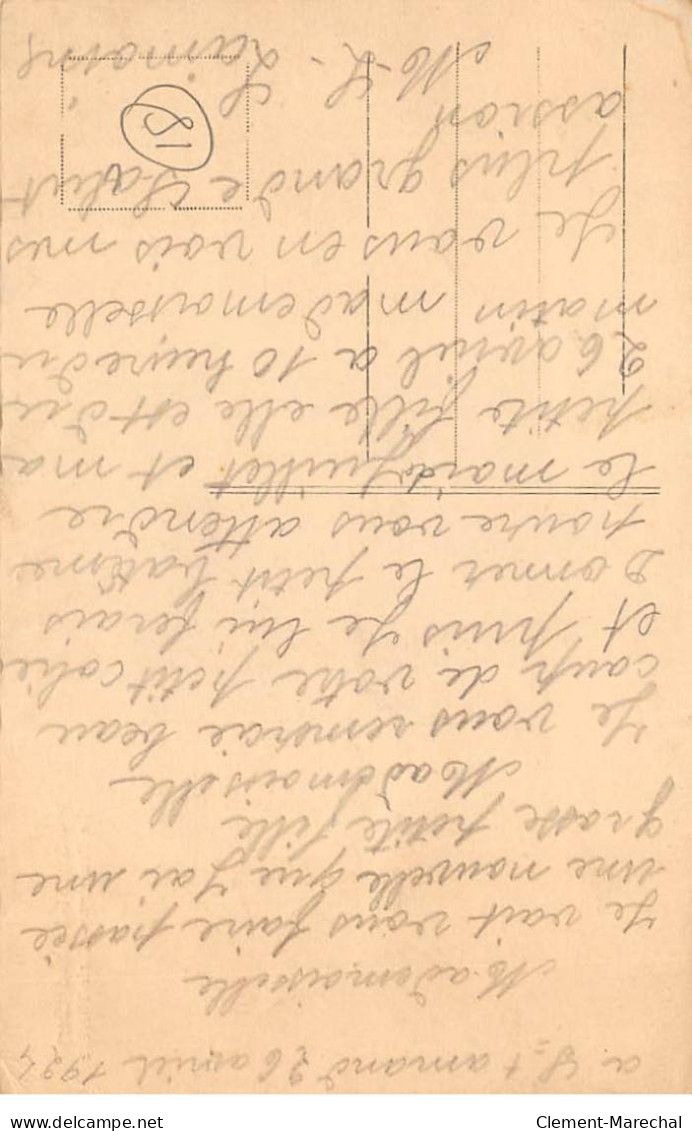 a St amand 26 avril 1924
Mademoiselle
Je vait vous faire passée
une nouvelle que J'ai une
grosse petite fille
Mademoiselle
Je vous remercie beau
coup de votre petit colie
et puis Je lui ferais
donner le petit batême
nous vous attendre
le mardi Juillet et ma
petite fille elle est du
26 avril a 10 heure du
matin mademoiselle
Je vous en vois mes
plus grande Salut
assion
M-L- Laimoins
18
Clement-Marechal